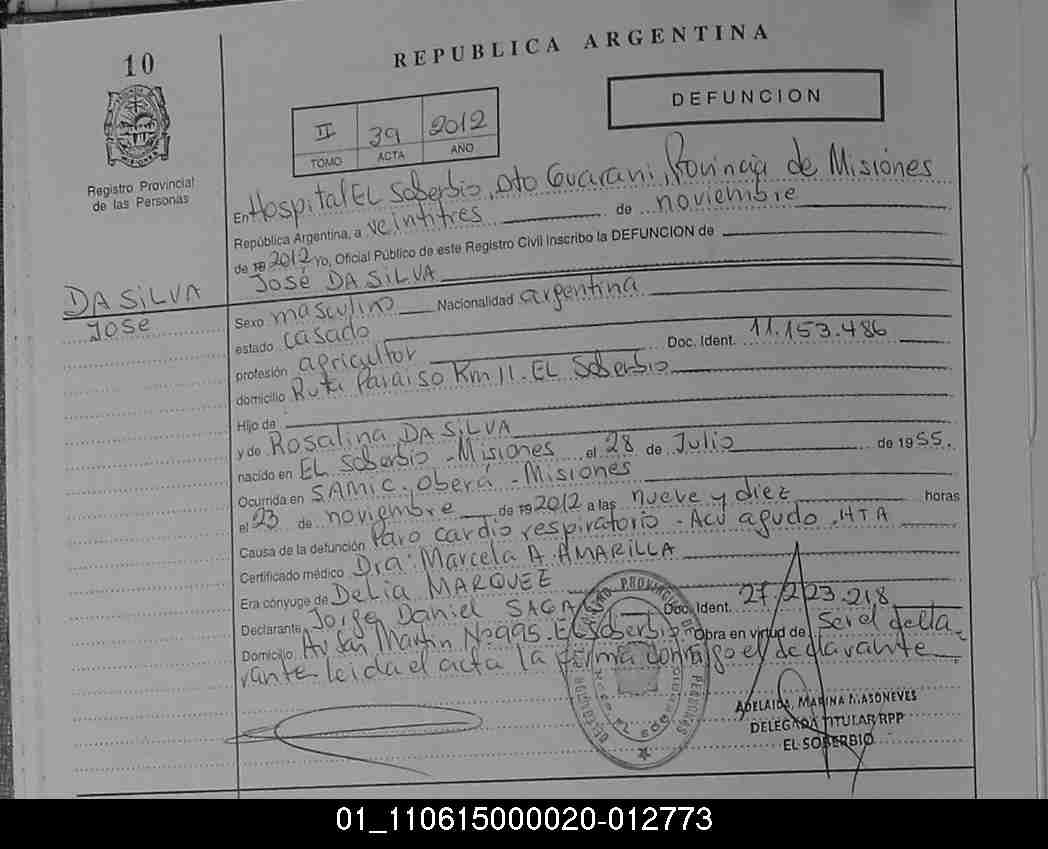 REPUBLICA ARGENTINA
10
DEFUNCION
II 39 2012
TOMO ACTA AÑO
Registro Provincial
de las Personas
En Hospital EL Soberbio, Dto Guarani, Provincia de Misiones
República Argentina, a veintitres de noviembre
de 19 2012 Yo, Oficial Público de este Registro Civil Inscribo la DEFUNCION de
José DA SILVA
DA SILVA
JOSE
Sexo masculino Nacionalidad argentina
estado casado
profesión agricultor Doc. Ident. 11.153.486
domicilio Ruta Paraiso Km 11. EL Soberbio
Hijo de
y de Rosalina DA SILVA
nacido en EL Soberbio - Misiones el 28 de Julio de 1955.
Ocurrida en SAMIC. Oberá - Misiones
el 23 de noviembre de 19 2012 a las nueve y diez horas
Causa de la defunción Paro cardio respiratorio - Acv agudo. HTA
Certificado médico Dra: Marcela A. AMARILLA
Era cónyuge de Delia MARQUEZ
Declarante Jorge Daniel Doc. Ident. 27.223.218
Domicilio Av San Martin Nº 995. EL Soberbio Obra en virtud de ser el decla
rante leida el acta la firma conmigo el declarante
ADELAIDA, MARINA MASONEVES
DELEGADA TITULAR RPP
EL SOBERBIO
01_110615000020-012773